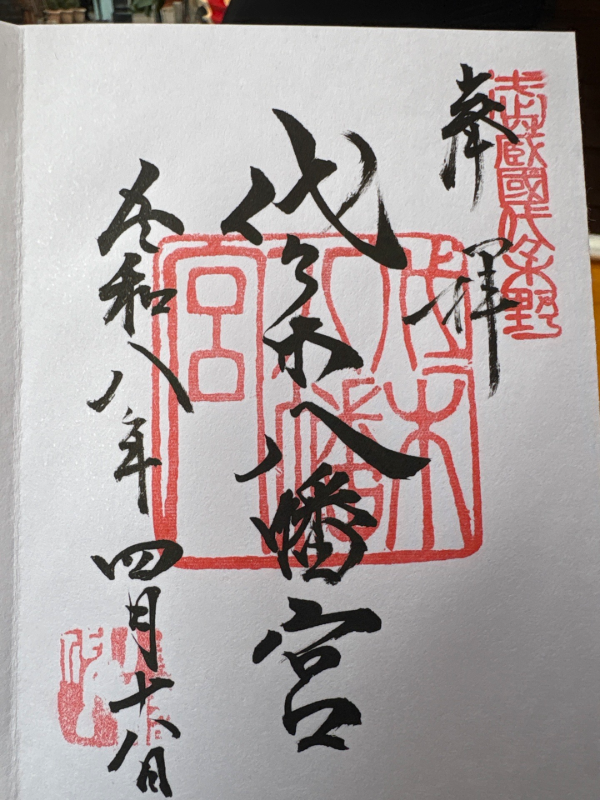 武蔵國代々木野
奉拝
代々木八幡宮
代木
八幡
宮
令和八年四月十八日